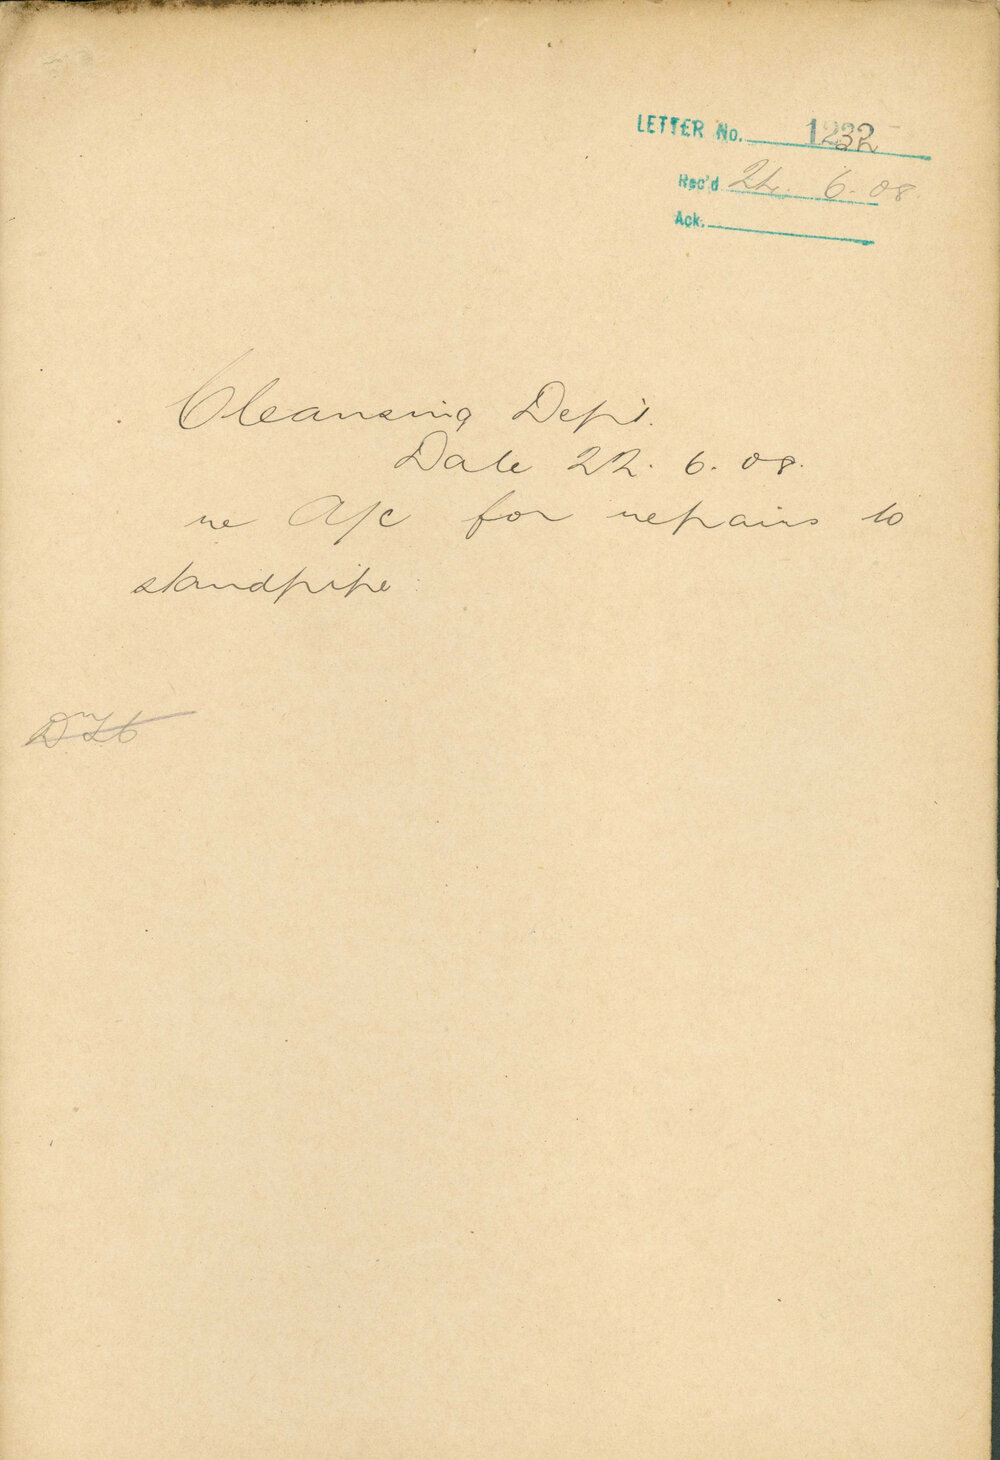 LETTER No. 1232
Rec'd 24. 6. 08.
Ack.
Cleansing Dept.
Date 22. 6. 08.
re A/c for repairs to
standpipe